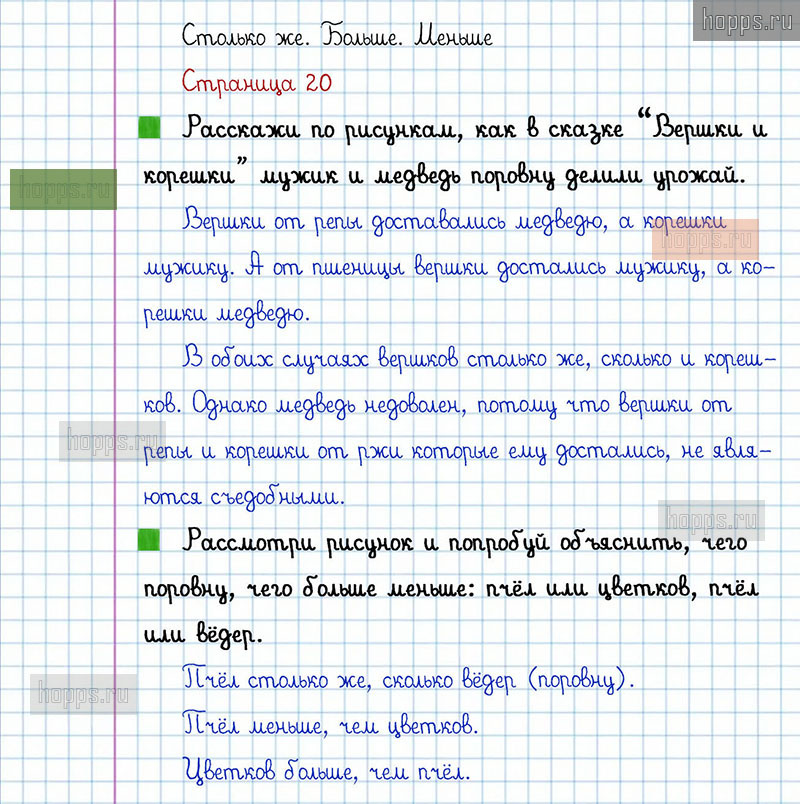 hopps.ru
Столько же. Больше. Меньше
Страница 20
Расскажи по рисункам, как в сказке “Вершки и
корешки” мужик и медведь поровну делили урожай.
hopps.ru
Вершки от репы доставались медведю, а корешки
hopps.ru
мужику. А от пшеницы вершки достались мужику, а ко-
решки медведю.
В обоих случаях вершков столько же, сколько и кореш-
ков. Однако медведь недоволен, потому что вершки от
hopps.ru
репы и корешки от ржи которые ему достались, не явля-
ются съедобными.
hopps.ru
Рассмотри рисунок и попробуй объяснить, чего
поровну, чего больше меньше: пчёл или цветков, пчёл
или вёдер.
Пчёл столько же, сколько вёдер (поровну).
hopps.ru
Пчёл меньше, чем цветков.
Цветков больше, чем пчёл.